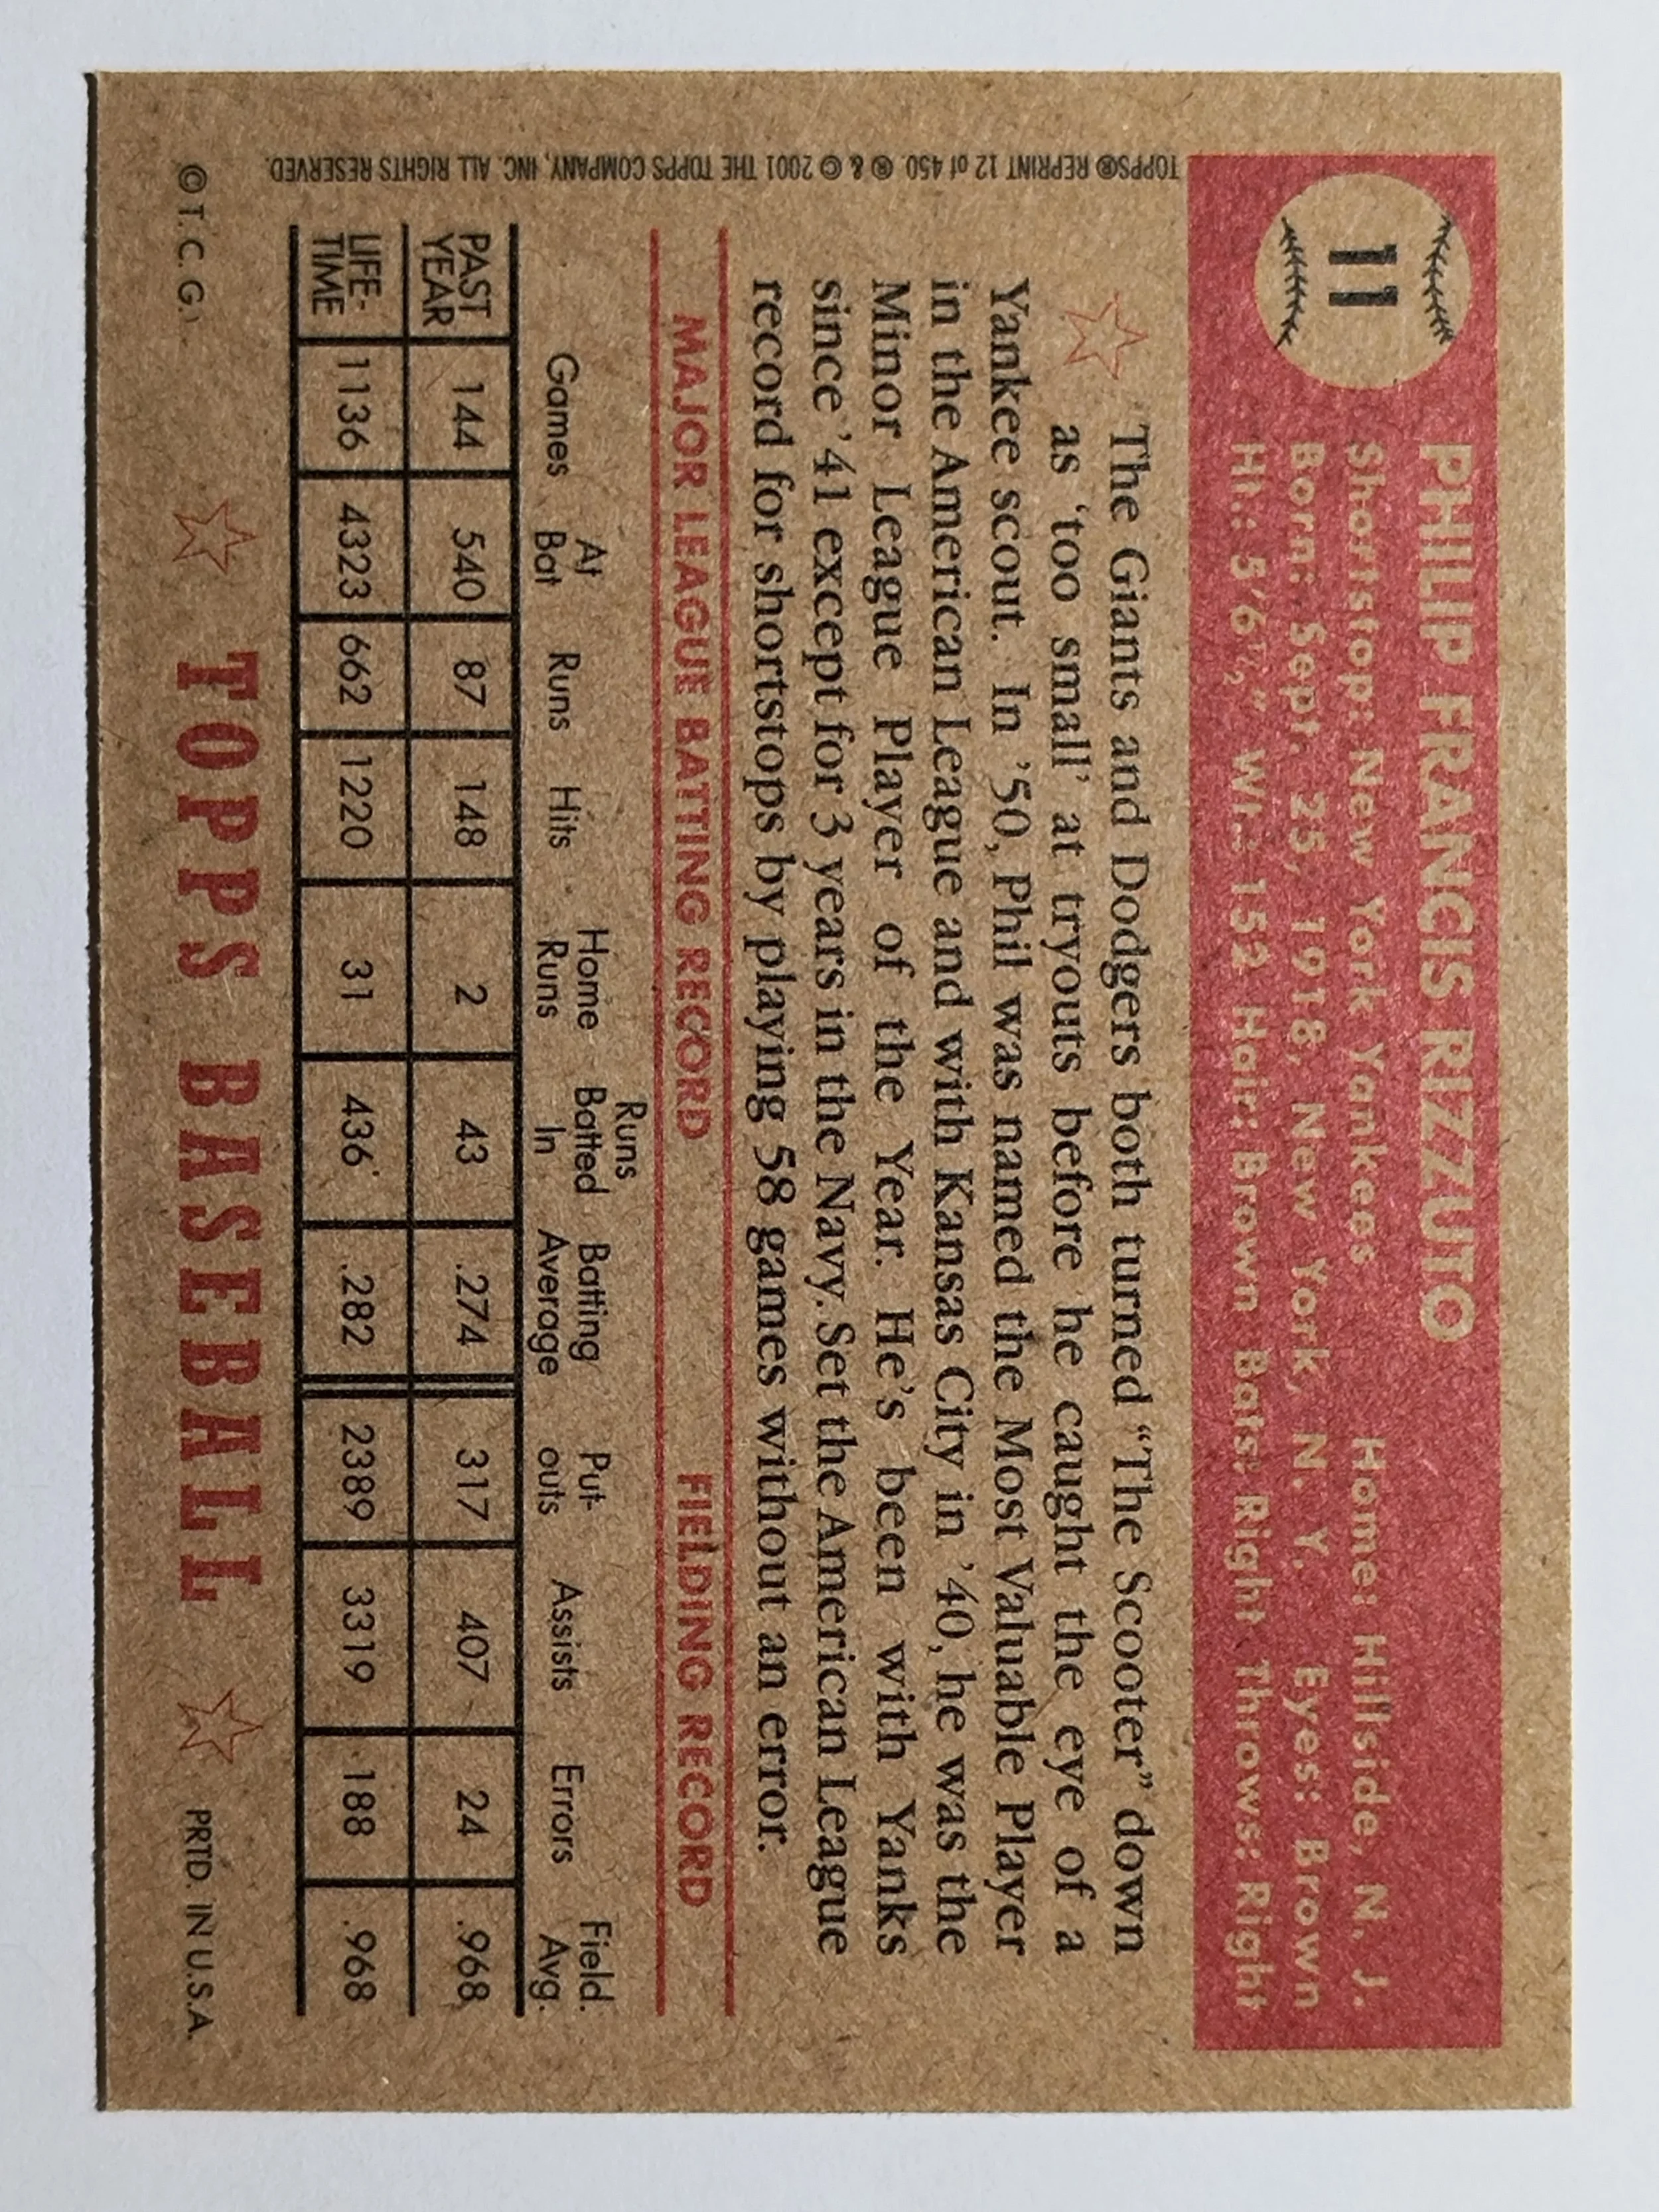 11
PHILIP FRANCIS RIZZUTO
Shortstop: New York Yankees Home: Hillside, N. J.
Born: Sept. 25, 1918, New York, N. Y. Eyes: Brown
Ht.: 5'6½" Wt.: 152 Hair: Brown Bats: Right Throws: Right
TOPPS® REPRINT 12 of 450. ® & © 2001 THE TOPPS COMPANY, INC. ALL RIGHTS RESERVED.
The Giants and Dodgers both turned “The Scooter” down
as ‘too small’ at tryouts before he caught the eye of a
Yankee scout. In ’50, Phil was named the Most Valuable Player
in the American League and with Kansas City in ’40, he was the
Minor League Player of the Year. He’s been with Yanks
since ’41 except for 3 years in the Navy. Set the American League
record for shortstops by playing 58 games without an error.
MAJOR LEAGUE BATTING RECORD FIELDING RECORD
Games At Bat Runs Hits Home Runs Runs Batted In Batting Average Put-outs Assists Errors Field. Avg.
PAST YEAR 144 540 87 148 2 43 .274 317 407 24 .968
LIFE-TIME 1136 4323 662 1220 31 436 .282 2389 3319 188 .968
© T. C. G. TOPPS BASEBALL PRTD. IN U.S.A.